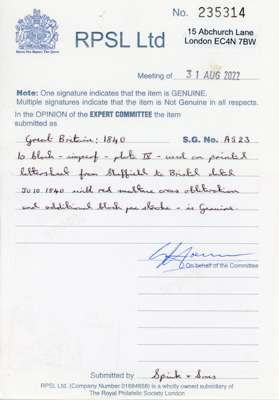 No. 235314
RPSL Ltd
15 Abchurch Lane
London EC4N 7BW
Meeting of 31 AUG 2022
Note: One signature indicates that the item is GENUINE.
Multiple signatures indicate that the item is Not Genuine in all respects.
In the OPINION of the EXPERT COMMITTEE the item
submitted as
Great Britain: 1840 S.G. No. AS23
1d black - imperf - plate IV - used on printed
lettersheet from Sheffield to Bristol dated
JU 10 1840 with red maltese cross obliteration
and additional black pen stroke - is genuine
On behalf of the Committee
Submitted by Spink & Sons
RPSL Ltd. (Company Number 01684658) is a wholly owned subsidiary of
The Royal Philatelic Society London